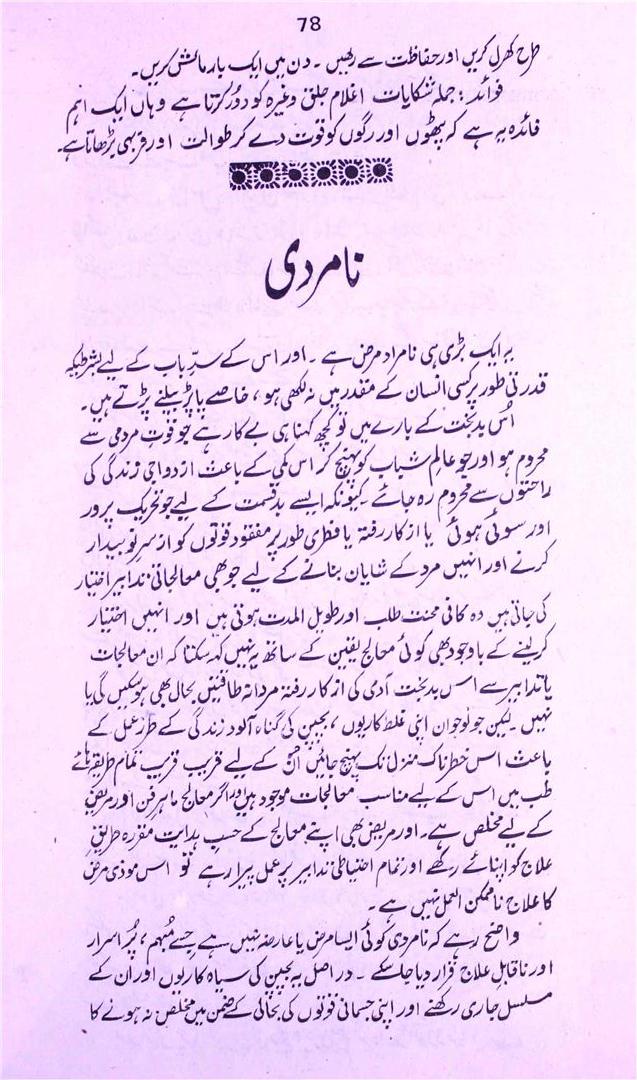 78
طرح کھرل کریں اور حفاظت سے رکھیں ۔ دن میں ایک بار مالش کریں۔
فوائد : جملہ شکایات اغلام جلق وغیرہ کو دور کرتا ہے وہاں ایک اہم
فائدہ یہ ہے کہ پٹھوں اور رگوں کو قوت دے کر طوالت اور فربہی بڑھاتا ہے۔
نامردی
یہ ایک بڑی ہی نامراد مرض ہے ۔ اور اس کے سدِّ باب کے لیے بشرطیکہ
قدرتی طور پر کسی انسان کے مقدر میں نہ لکھی ہو ، خاصے پاپڑ بیلنے پڑتے ہیں۔
اُس بدبخت کے بارے میں تو کچھ کہنا ہی بے کار ہے جو قوتِ مردمی سے
محروم ہو اور جو عالمِ شباب کو پہنچ کر اس کمی کے باعث ازدواجی زندگی کی
راحتوں سے محروم رہ جائے ۔ کیونکہ ایسے بدقسمت کے لیے جو تحریک پرور
اور سوئی ہوئی یا از کار رفتہ یا فطری طور پر مفقود قوتوں کو از سرِ نو بیدار
کرنے اور انہیں مرد کے شایان بنانے کے لیے جو بھی معالجاتی تدابیر اختیار
کی جاتی ہیں وہ کافی محنت طلب اور طویل المدت ہوتی ہیں اور انہیں اختیار
کر لینے کے باوجود بھی کوئی معالج یقین کے ساتھ یہ نہیں کہہ سکتا کہ ان معالجات
یا تدابیر سے اس بدبخت آدمی کی از کار رفتہ مردانہ طاقتیں بحال بھی ہو سکیں گی یا
نہیں ۔ لیکن جو نوجوان اپنی غلط کاریوں ، بچپن کی گناہ آلود زندگی کے طرزِ عمل کے
باعث اس خطرناک منزل تک پہنچ جائیں اُن کے لیے قریب قریب تمام طریقہ ہائے
طب میں اس کے لیے مناسب معالجات موجود ہیں اور اگر معالج ماہرِ فن اور مریض
کے لیے مخلص ہے۔ اور مریض بھی اپنے معالج کے حسبِ ہدایت مقررہ طریقِ
علاج کو اپنائے رکھے اور تمام احتیاطی تدابیر پر عمل پیرا رہے تو اس موذی مرض
کا علاج ناممکن العمل نہیں ہے ۔
واضح رہے کہ نامردی کوئی ایسا مرض یا عارضہ نہیں ہے جسے مُبہم ، پُر اسرار
اور ناقابلِ علاج قرار دیا جا سکے ۔ در اصل یہ بچپن کی سیاہ کاریوں اور ان کے
مسلسل جاری رکھنے اور اپنی جسمانی قوتوں کی بحالی کے ضمن میں مخلص نہ ہونے کا